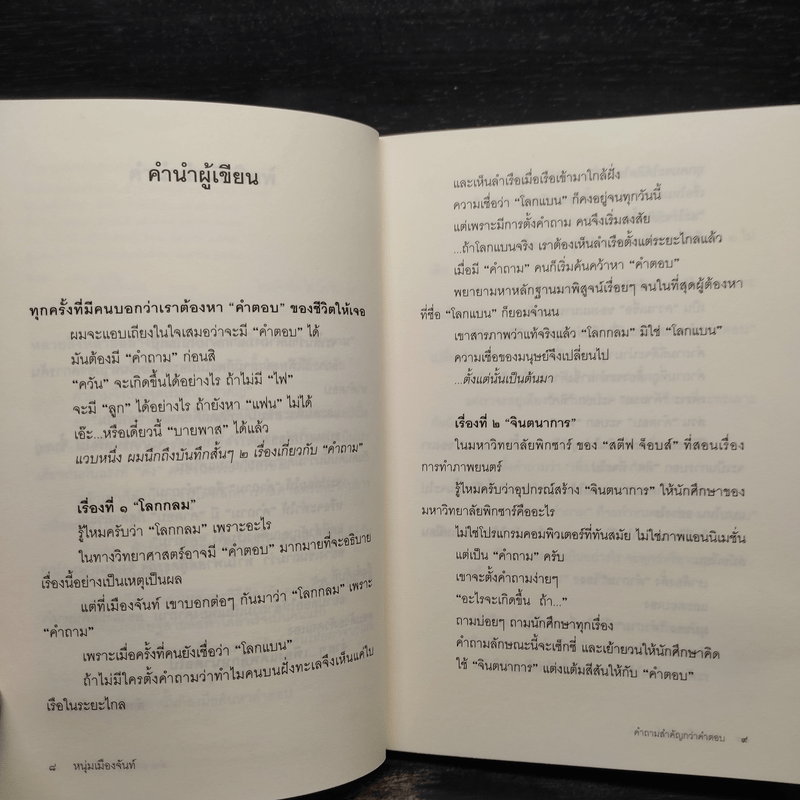 คำนำผู้เขียน
ทุกครั้งที่มีคนบอกว่าเราต้องหา “คำตอบ” ของชีวิตให้เจอ
ผมจะแอบเถียงในใจเสมอว่าจะมี “คำตอบ” ได้
มันต้องมี “คำถาม” ก่อนสิ
“ควัน” จะเกิดขึ้นได้อย่างไร ถ้าไม่มี “ไฟ”
จะมี “ลูก” ได้อย่างไร ถ้ายังหา “แฟน” ไม่ได้
เอ๊ะ...หรือเดี๋ยวนี้ “บายพาส” ได้แล้ว
แวบหนึ่ง ผมนึกถึงบันทึกสั้นๆ ๒ เรื่องเกี่ยวกับ “คำถาม”
เรื่องที่ ๑ “โลกกลม”
รู้ไหมครับว่า “โลกกลม” เพราะอะไร
ในทางวิทยาศาสตร์อาจมี “คำตอบ” มากมายที่จะอธิบาย
เรื่องนี้อย่างเป็นเหตุเป็นผล
แต่ที่เมืองจันท์ เขาบอกต่อๆ กันมาว่า “โลกกลม” เพราะ
“คำถาม”
เพราะเมื่อครั้งที่คนยังเชื่อว่า “โลกแบน”
ถ้าไม่มีใครตั้งคำถามว่าทำไมคนบนฝั่งทะเลจึงเห็นแค่ใบ
เรือในระยะไกล
๘ หนุ่มเมืองจันท์
และเห็นลำเรือเมื่อเรือเข้ามาใกล้ฝั่ง
ความเชื่อว่า “โลกแบน” ก็คงอยู่จนทุกวันนี้
แต่เพราะมีการตั้งคำถาม คนจึงเริ่มสงสัย
...ถ้าโลกแบนจริง เราต้องเห็นลำเรือตั้งแต่ระยะไกลแล้ว
เมื่อมี “คำถาม” คนก็เริ่มค้นคว้าหา “คำตอบ”
พยายามหาหลักฐานมาพิสูจน์เรื่อยๆ จนในที่สุดผู้ต้องหา
ที่ชื่อ “โลกแบน” ก็ยอมจำนน
เขาสารภาพว่าแท้จริงแล้ว “โลกกลม” มิใช่ “โลกแบน”
ความเชื่อของมนุษย์จึงเปลี่ยนไป
...ตั้งแต่นั้นเป็นต้นมา
เรื่องที่ ๒ “จินตนาการ”
ในมหาวิทยาลัยพิกซาร์ ของ “สตีฟ จ็อบส์” ที่สอนเรื่อง
การทำภาพยนตร์
รู้ไหมครับว่าอุปกรณ์สร้าง “จินตนาการ” ให้นักศึกษาของ
มหาวิทยาลัยพิกซาร์คืออะไร
ไม่ใช่โปรแกรมคอมพิวเตอร์ที่ทันสมัย ไม่ใช่ภาพแอนนิเมชั่น
แต่เป็น “คำถาม” ครับ
เขาจะตั้งคำถามง่ายๆ
“อะไรจะเกิดขึ้น ถ้า...”
ถามบ่อยๆ ถามนักศึกษาทุกเรื่อง
คำถามลักษณะนี้จะเซ็กซี่ และเย้ายวนให้นักศึกษาคิด
ใช้ “จินตนาการ” แต่งแต้มสีสันให้กับ “คำตอบ”
คำถามสำคัญกว่าคำตอบ ๙